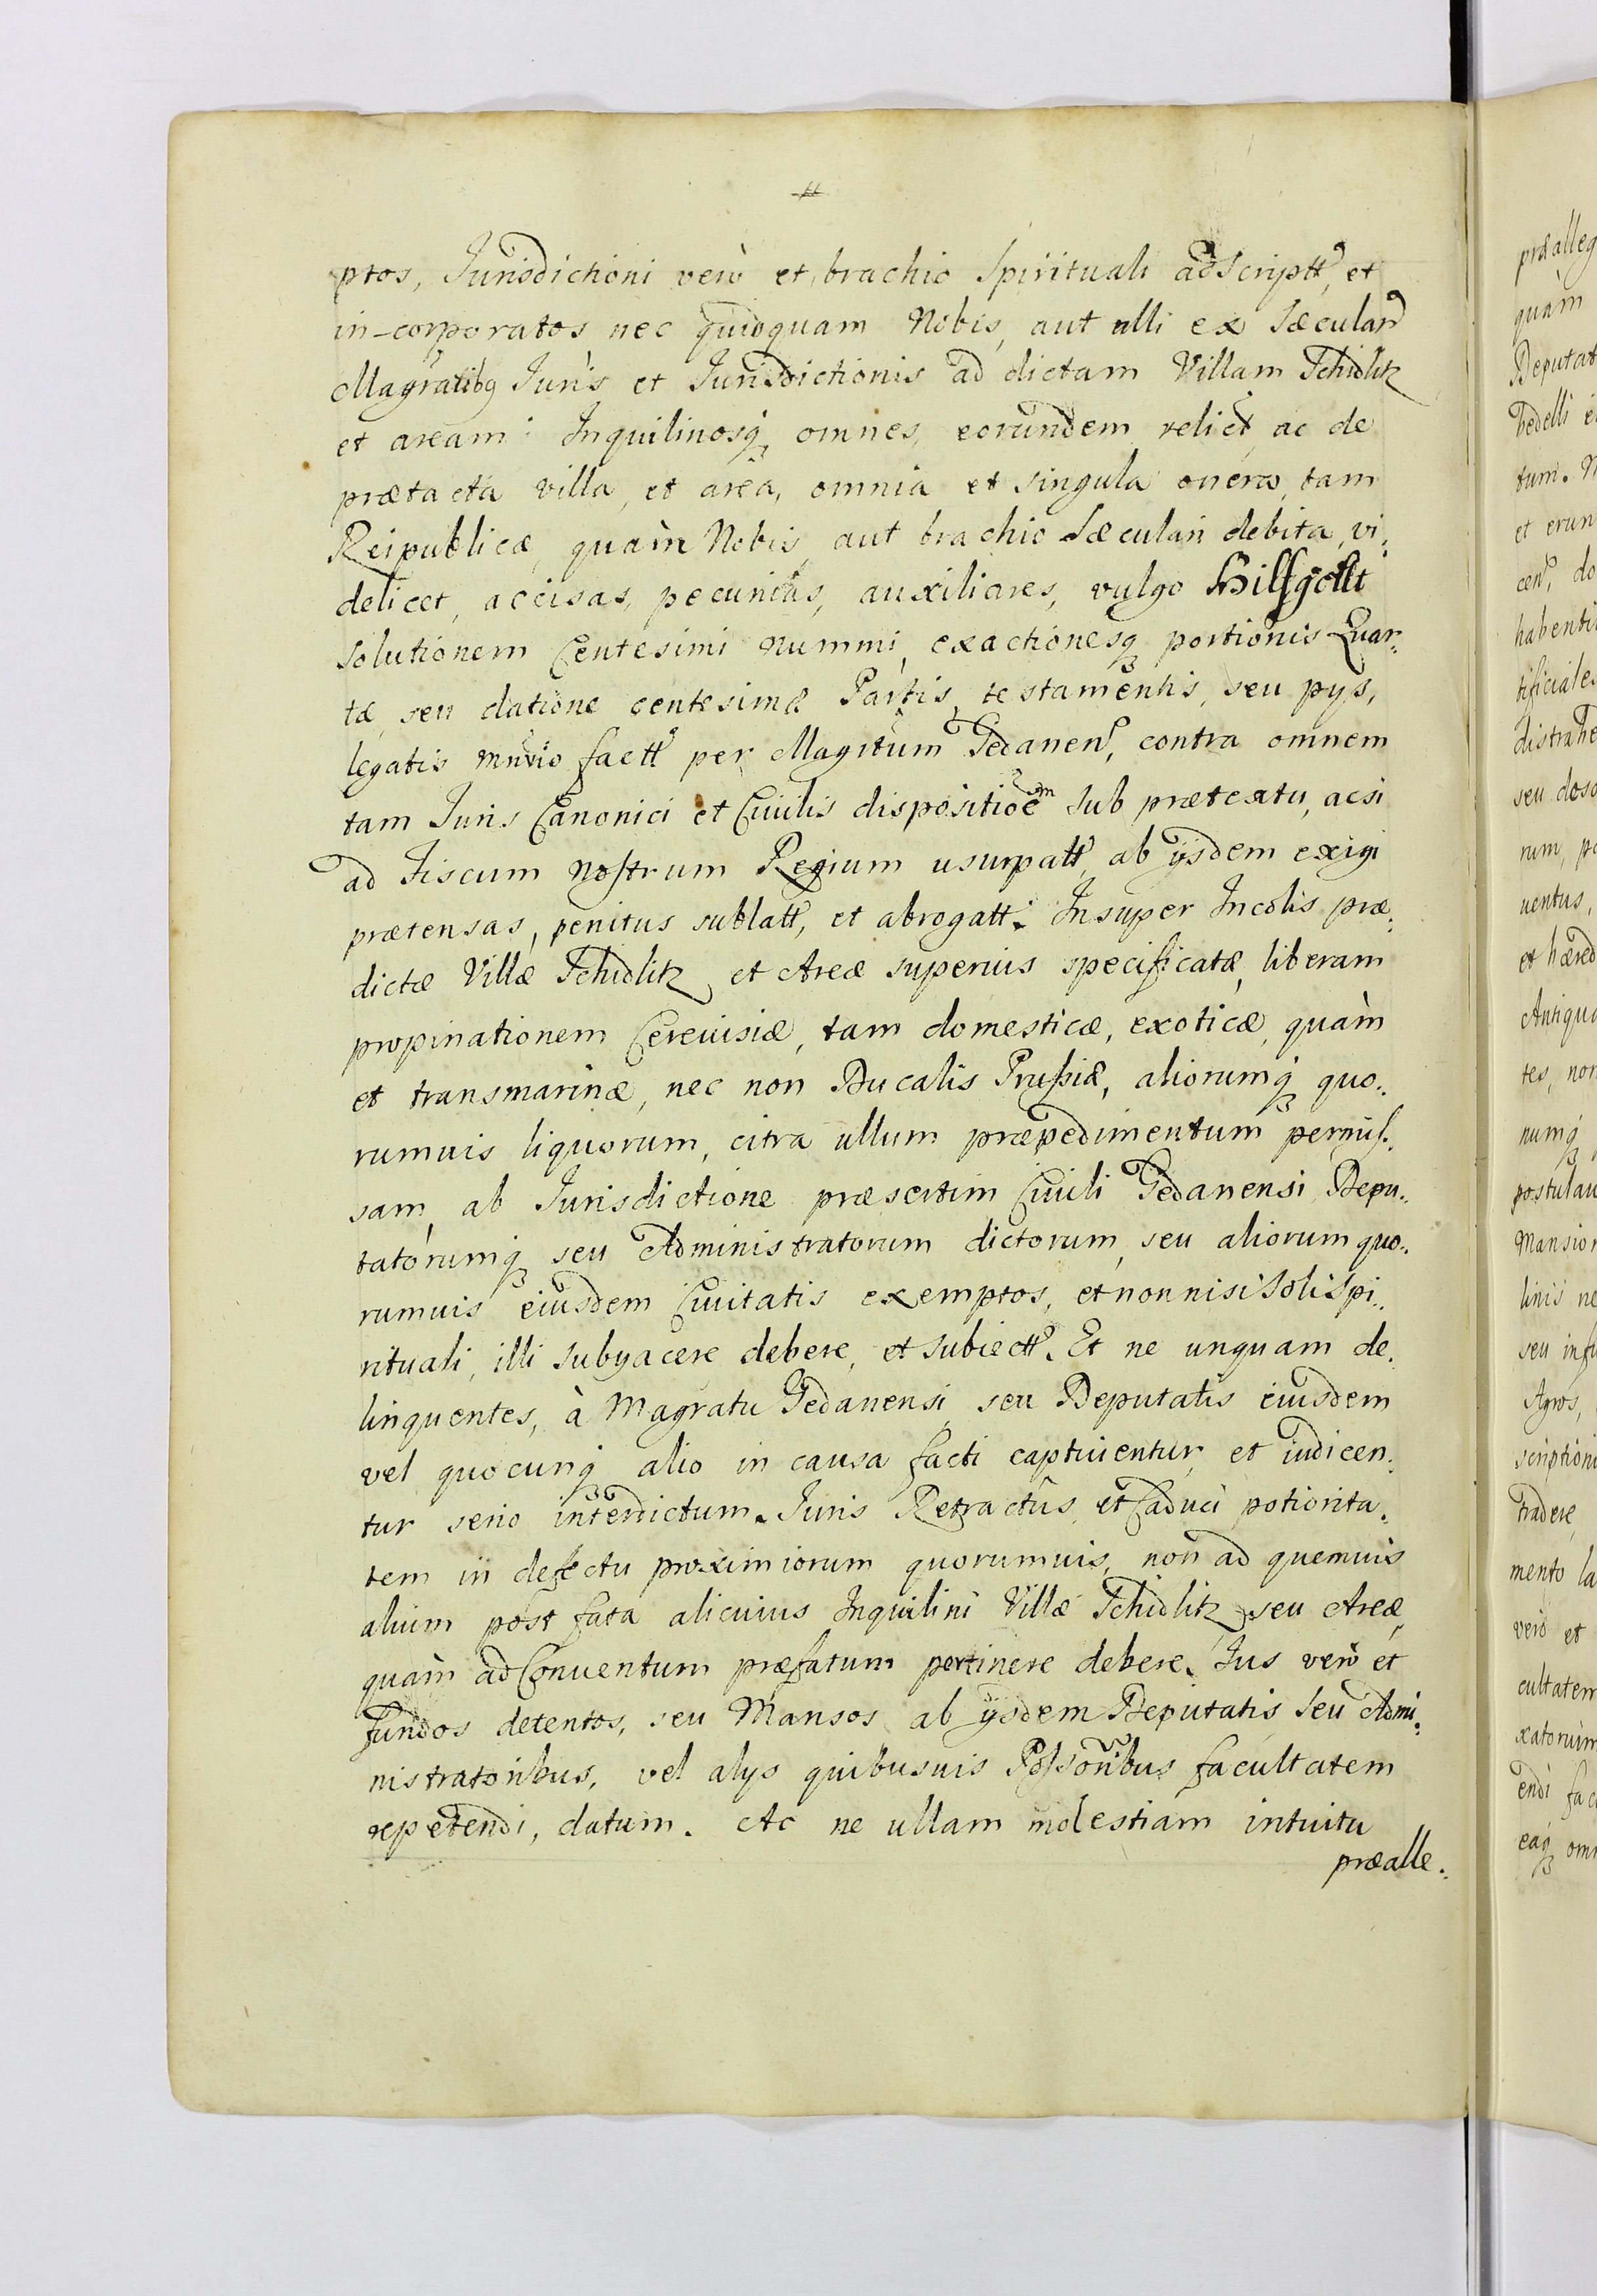 ptos, Jurisdictioni verò et brachio Spirituali adscriptt, et
in-corporatos nec quidquam Nobis, aut ulli ex Sæcular
Magratibq Juris et Jurisdictionis ad dictam Villam Schidlitz
et aream Inquilinosq omnes, eorundem relict ac de
prætacta villa, et area, omnia et singula onera, tam
Reipublicæ, quàm Nobis, aut brachio Sæculari debita, vi.
delicet, accisas, pecunias, auxiliares, vulgo Hilfgelt
solutionem Centesimi nummi, exactionesq portionis Quar.
tæ seu datione centesimæ Partis, testamentis, seu pys,
legatis factt per Magrtum Gedanen, contra omnem
tam Juris Canonici et Civilis dispositioem sub prætextu, acsi
ad Fiscum Nostrum Regium usurpatt, ab ijsdem exigi
prætensas, penitus sublatt, et abrogatt. Insuper Incolis præ.
dictæ Villæ Schidlitz et Areæ superius specificatæ, liberam
propinationem Cerevisiæ, tam domesticæ, exoticæ, quàm
et transmarinæ, nec non Ducalis Prussiæ, aliorumq quo.
rumuis liquorum, citra ullum præpedimentum permis.
sam, ab Jurisdictione præsertim Civili Gedanensi Depu.
tatorumq seu Administratorum dictorum, seu aliorum quo.
rumuis eiusdem Civitatis exemptos, et nonnisi Soli Spi.
rituali, illi subyacere debere, et subiectt. Et ne unquam de.
linquentes, à Magratu Gedanensi, seu Deputatis eiusdem
vel quocunq alio in causa facti captiuentur et iudicen.
tur serio interdictum. Juris Retractûs et Caduci potiorita.
tem in defectu proximiorum quorumuis, non ad quemuis
alium post fata alicuius Inquilini Villæ Schidlitz seu Areæ,
quàm ad Conuentum præfatum pertinere debere. Jus verò et
fundos detentos, seu Mansos ab ijsdem Deputatis seu Admi.
nistratoribus, vel alys quibusuis Possoribus facultatem
repetendi, datum. Ac ne ullam molestiam intuitu
præalle.